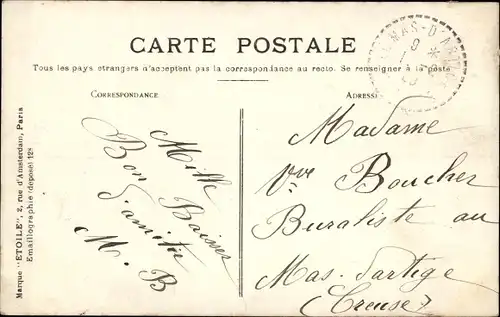 CARTE POSTALE
Tous les pays étrangers n'acceptent pas la correspondance au recto. Se renseigner à la poste
CORRESPONDANCE
ADRESSE
Mille
Bon Baiser
d'amitié
M. B
Madame
Vve Boucher
Buraliste au
Mas-d'artige
(Creuse)
Marque "ETOILE", 2, rue d'Amsterdam, Paris
Emaillographie (déposé) 128
MAS-D'ART